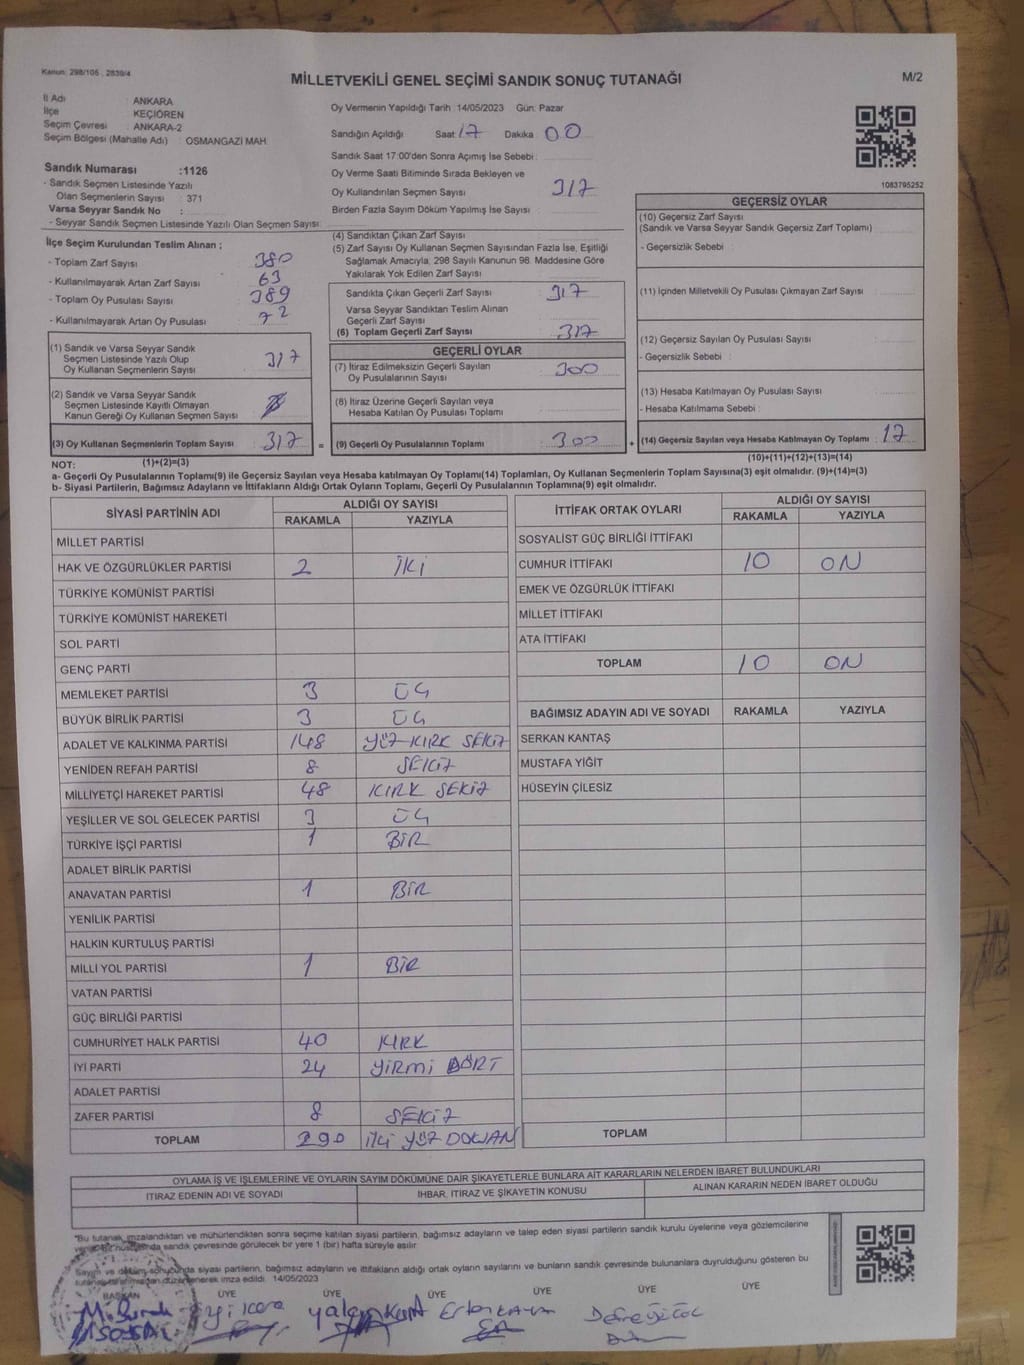 Kanun: 298/105 , 2839/4
MİLLETVEKİLİ GENEL SEÇİMİ SANDIK SONUÇ TUTANAĞI
M/2
İl Adı : ANKARA
İlçe : KEÇİÖREN
Seçim Çevresi : ANKARA-2
Seçim Bölgesi (Mahalle Adı) : OSMANGAZİ MAH.
Oy Vermenin Yapıldığı Tarih 14/05/2023 Gün: Pazar
Sandığın Açıldığı Saat 17 Dakika 00
Sandık Saat 17:00'den Sonra Açımış İse Sebebi :
Oy Verme Saati Bitiminde Sırada Bekleyen ve
Oy Kullandırılan Seçmen Sayısı 317
Birden Fazla Sayım Döküm Yapılmış İse Sayısı :
Sandık Numarası :1126
- Sandık Seçmen Listesinde Yazılı
Olan Seçmenlerin Sayısı : 371
Varsa Seyyar Sandık No :
- Seyyar Sandık Seçmen Listesinde Yazılı Olan Seçmen Sayısı :
İlçe Seçim Kurulundan Teslim Alınan ;
- Toplam Zarf Sayısı 380
- Kullanılmayarak Artan Zarf Sayısı 63
- Toplam Oy Pusulası Sayısı 389
- Kullanılmayarak Artan Oy Pusulası 72
(1) Sandık ve Varsa Seyyar Sandık
Seçmen Listesinde Yazılı Olup
Oy Kullanan Seçmenlerin Sayısı 317
(2) Sandık ve Varsa Seyyar Sandık
Seçmen Listesinde Kayıtlı Olmayan
Kanun Gereği Oy Kullanan Seçmen Sayısı
(3) Oy Kullanan Seçmenlerin Toplam Sayısı 317 =
(1)+(2)=(3)
(4) Sandıktan Çıkan Zarf Sayısı :
(5) Zarf Sayısı Oy Kullanan Seçmen Sayısından Fazla İse, Eşitliği
Sağlamak Amacıyla, 298 Sayılı Kanunun 98. Maddesine Göre
Yakılarak Yok Edilen Zarf Sayısı :
Sandıkta Çıkan Geçerli Zarf Sayısı 317
Varsa Seyyar Sandıktan Teslim Alınan
Geçerli Zarf Sayısı
(6) Toplam Geçerli Zarf Sayısı 317
GEÇERLİ OYLAR
(7) İtiraz Edilmeksizin Geçerli Sayılan
Oy Pusulalarının Sayısı 300
(8) İtiraz Üzerine Geçerli Sayılan veya
Hesaba Katılan Oy Pusulası Toplamı
(9) Geçerli Oy Pusulalarının Toplamı 300 +
1083795252
GEÇERSİZ OYLAR
(10) Geçersiz Zarf Sayısı
(Sandık ve Varsa Seyyar Sandık Geçersiz Zarf Toplamı)
- Geçersizlik Sebebi :
(11) İçinden Milletvekili Oy Pusulası Çıkmayan Zarf Sayısı
(12) Geçersiz Sayılan Oy Pusulası Sayısı :
- Geçersizlik Sebebi :
(13) Hesaba Katılmayan Oy Pusulası Sayısı
- Hesaba Katılmama Sebebi :
(14) Geçersiz Sayılan veya Hesaba Katılmayan Oy Toplamı : 17
(10)+(11)+(12)+(13)=(14)
NOT:
a- Geçerli Oy Pusulalarının Toplamı(9) ile Geçersiz Sayılan veya Hesaba katılmayan Oy Toplamı(14) Toplamları, Oy Kullanan Seçmenlerin Toplam Sayısına(3) eşit olmalıdır. (9)+(14)=(3)
b- Siyasi Partilerin, Bağımsız Adayların ve İttifakların Aldığı Ortak Oyların Toplamı, Geçerli Oy Pusulalarının Toplamına(9) eşit olmalıdır.
SİYASİ PARTİNİN ADI ALDIĞI OY SAYISI
RAKAMLA YAZIYLA
MİLLET PARTİSİ
HAK VE ÖZGÜRLÜKLER PARTİSİ 2 İKİ
TÜRKİYE KOMÜNİST PARTİSİ
TÜRKİYE KOMÜNİST HAREKETİ
SOL PARTİ
GENÇ PARTİ
MEMLEKET PARTİSİ 3 ÜÇ
BÜYÜK BİRLİK PARTİSİ 3 ÜÇ
ADALET VE KALKINMA PARTİSİ 148 YÜZ KIRK SEKİZ
YENİDEN REFAH PARTİSİ 8 SEKİZ
MİLLİYETÇİ HAREKET PARTİSİ 48 KIRK SEKİZ
YEŞİLLER VE SOL GELECEK PARTİSİ 3 ÜÇ
TÜRKİYE İŞÇİ PARTİSİ 1 BİR
ADALET BİRLİK PARTİSİ
ANAVATAN PARTİSİ 1 BİR
YENİLİK PARTİSİ
HALKIN KURTULUŞ PARTİSİ
MİLLİ YOL PARTİSİ 1 BİR
VATAN PARTİSİ
GÜÇ BİRLİĞİ PARTİSİ
CUMHURİYET HALK PARTİSİ 40 KIRK
İYİ PARTİ 24 YİRMİ DÖRT
ADALET PARTİSİ
ZAFER PARTİSİ 8 SEKİZ
TOPLAM 290 İKİ YÜZ DOKSAN
İTTİFAK ORTAK OYLARI ALDIĞI OY SAYISI
RAKAMLA YAZIYLA
SOSYALİST GÜÇ BİRLİĞİ İTTİFAKI
CUMHUR İTTİFAKI 10 ON
EMEK VE ÖZGÜRLÜK İTTİFAKI
MİLLET İTTİFAKI
ATA İTTİFAKI
TOPLAM 10 ON
BAĞIMSIZ ADAYIN ADI VE SOYADI RAKAMLA YAZIYLA
SERKAN KANTAŞ
MUSTAFA YİĞİT
HÜSEYİN ÇİLESİZ
TOPLAM
OYLAMA İŞ VE İŞLEMLERİNE VE OYLARIN SAYIM DÖKÜMÜNE DAİR ŞİKAYETLERLE BUNLARA AİT KARARLARIN NELERDEN İBARET BULUNDUKLARI
İTİRAZ EDENİN ADI VE SOYADI İHBAR, İTİRAZ VE ŞİKAYETİN KONUSU ALINAN KARARIN NEDEN İBARET OLDUĞU
"Bu tutanak imzalandıktan ve mühürlendikten sonra seçime katılan siyasi partilerin, bağımsız adayların ve talep eden siyasi partilerin sandık kurulu üyelerine veya gözlemcilerine
sandık çevresinde görülecek bir yere 1 (bir) hafta süreyle asılır.
Sayım ve döküm sonucunda siyasi partilerin, bağımsız adayların ve ittifakların aldığı ortak oyların sayılarını ve bunların sandık çevresinde bulunanlara duyrulduğunu gösteren bu
düzenlenerek imza edildi. 14/05/2023
BAŞKAN ÜYE ÜYE ÜYE ÜYE ÜYE